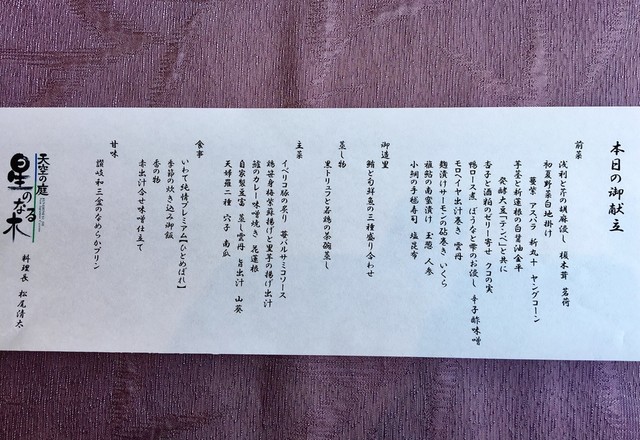 本日の御献立
前菜
浅利と芹の胡麻浸し 榎木茸 茗荷
初夏野菜白地掛け
蕨菜 アスパラ 新丸十 ヤングコーン
芋茎と新蓮根の白醤油金平
発酵大豆「テンペ」と共に
杏子と酒粕のゼリー寄せ クコの実
鴨ロース煮 ぽうなと雫のお浸し 辛子酢味噌
モロヘイヤ出汁巻き 雲丹
麹漬けサーモンの砧巻き いくら
稚鮎の南蛮漬け 玉葱 人参
小鯛の手毬寿司 塩昆布
御造里
鮪と旬鮮魚の三種盛り合わせ
蒸し物
黒トリュフと若鶏の茶碗蒸し
主菜
イベリコ豚の炙り 苺バルサミコソース
鶏笹身梅紫蘇揚げと里芋の揚げ出汁
鱸のカレー味噌焼き 花蓮根
自家製豆富 蒸し雲丹 旨出汁 山葵
天婦羅二種 穴子 南瓜
食事
いわて純情プレミアム【ひとめぼれ】
季節の炊き込み御飯
香の物
赤出汁合せ味噌仕立て
甘味
讃岐和三盆のなめらかプリン
天空の庭
星のなる木
料理長 松尾清太